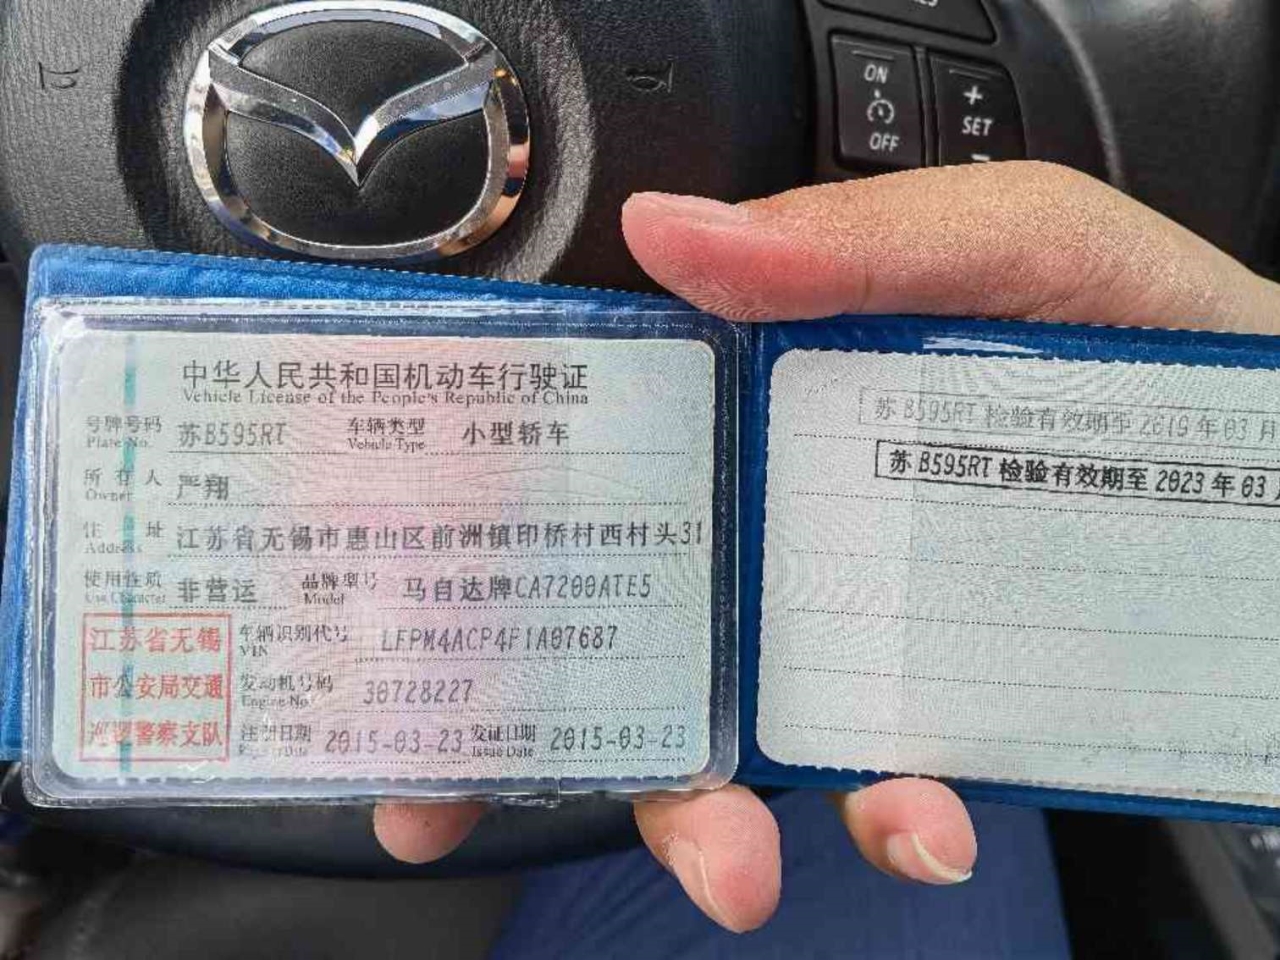 ON
OFF
+
SET
−
中华人民共和国机动车行驶证
Vehicle License of the People's Republic of China
号牌号码 苏B595RT 车辆类型 小型轿车
Plate No. Vehicle Type
所有人 严翔
Owner
住址 江苏省无锡市惠山区前洲镇印桥村西村头31
Address
使用性质 非营运 品牌型号 马自达牌CA7200ATE5
Use Character Model
江苏省无锡
市公安局交通
巡逻警察支队
车辆识别代号 LFPM4ACP4F1A07687
VIN
发动机号码 30728227
Engine No.
注册日期 2015-03-23 发证日期 2015-03-23
Register Date Issue Date
苏B595RT 检验有效期至 2019年03月
苏B595RT 检验有效期至 2023年03月